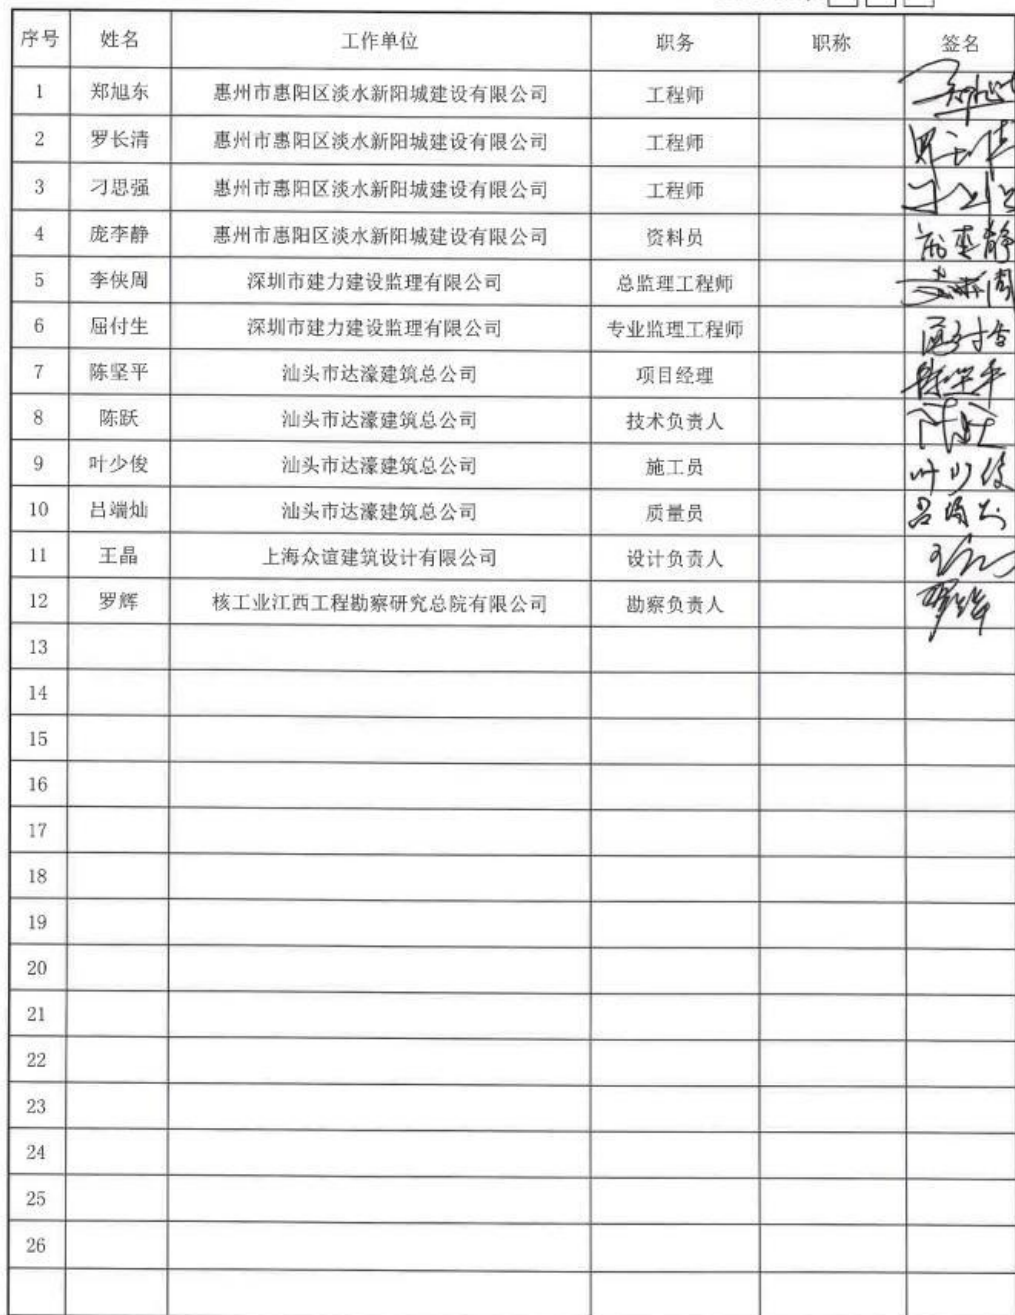 序号 姓名 工作单位 职务 职称 签名
1 郑旭东 惠州市惠阳区淡水新阳城建设有限公司 工程师
2 罗长清 惠州市惠阳区淡水新阳城建设有限公司 工程师
3 刁思强 惠州市惠阳区淡水新阳城建设有限公司 工程师
4 庞李静 惠州市惠阳区淡水新阳城建设有限公司 资料员 庞李静
5 李侠周 深圳市建力建设监理有限公司 总监理工程师
6 屈付生 深圳市建力建设监理有限公司 专业监理工程师
7 陈坚平 汕头市达濠建筑总公司 项目经理 陈坚平
8 陈跃 汕头市达濠建筑总公司 技术负责人 陈跃
9 叶少俊 汕头市达濠建筑总公司 施工员 叶少俊
10 吕端灿 汕头市达濠建筑总公司 质量员 吕端灿
11 王晶 上海众谊建筑设计有限公司 设计负责人
12 罗辉 核工业江西工程勘察研究总院有限公司 勘察负责人 罗辉
13
14
15
16
17
18
19
20
21
22
23
24
25
26